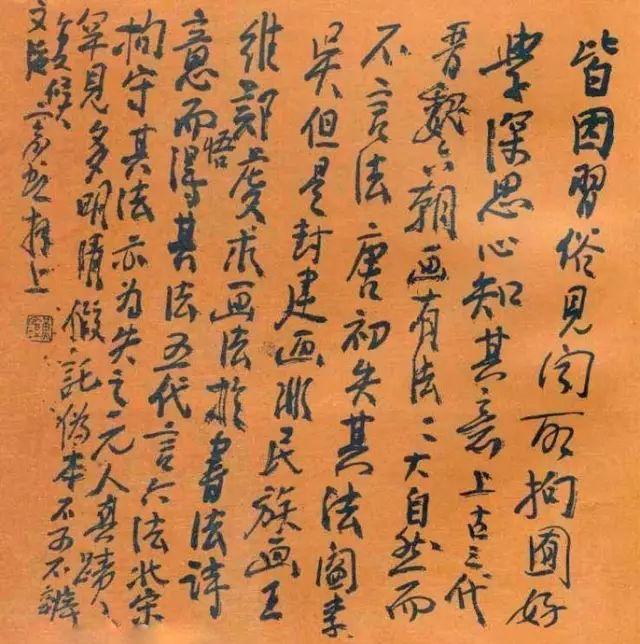 皆因習俗見闻所拘囿好
學深思心知其意上古三代
晋魏六朝画有法二大自然而
不言法唐初失其法阎李
吴但是封建画非民族画王
維鄭虔求画法於書法詩
意而悟得其法五代言六法北宋
拘守其法亦为失之元人真蹟人
罕見多明清假託偽本不可不辨
宾虹拜上